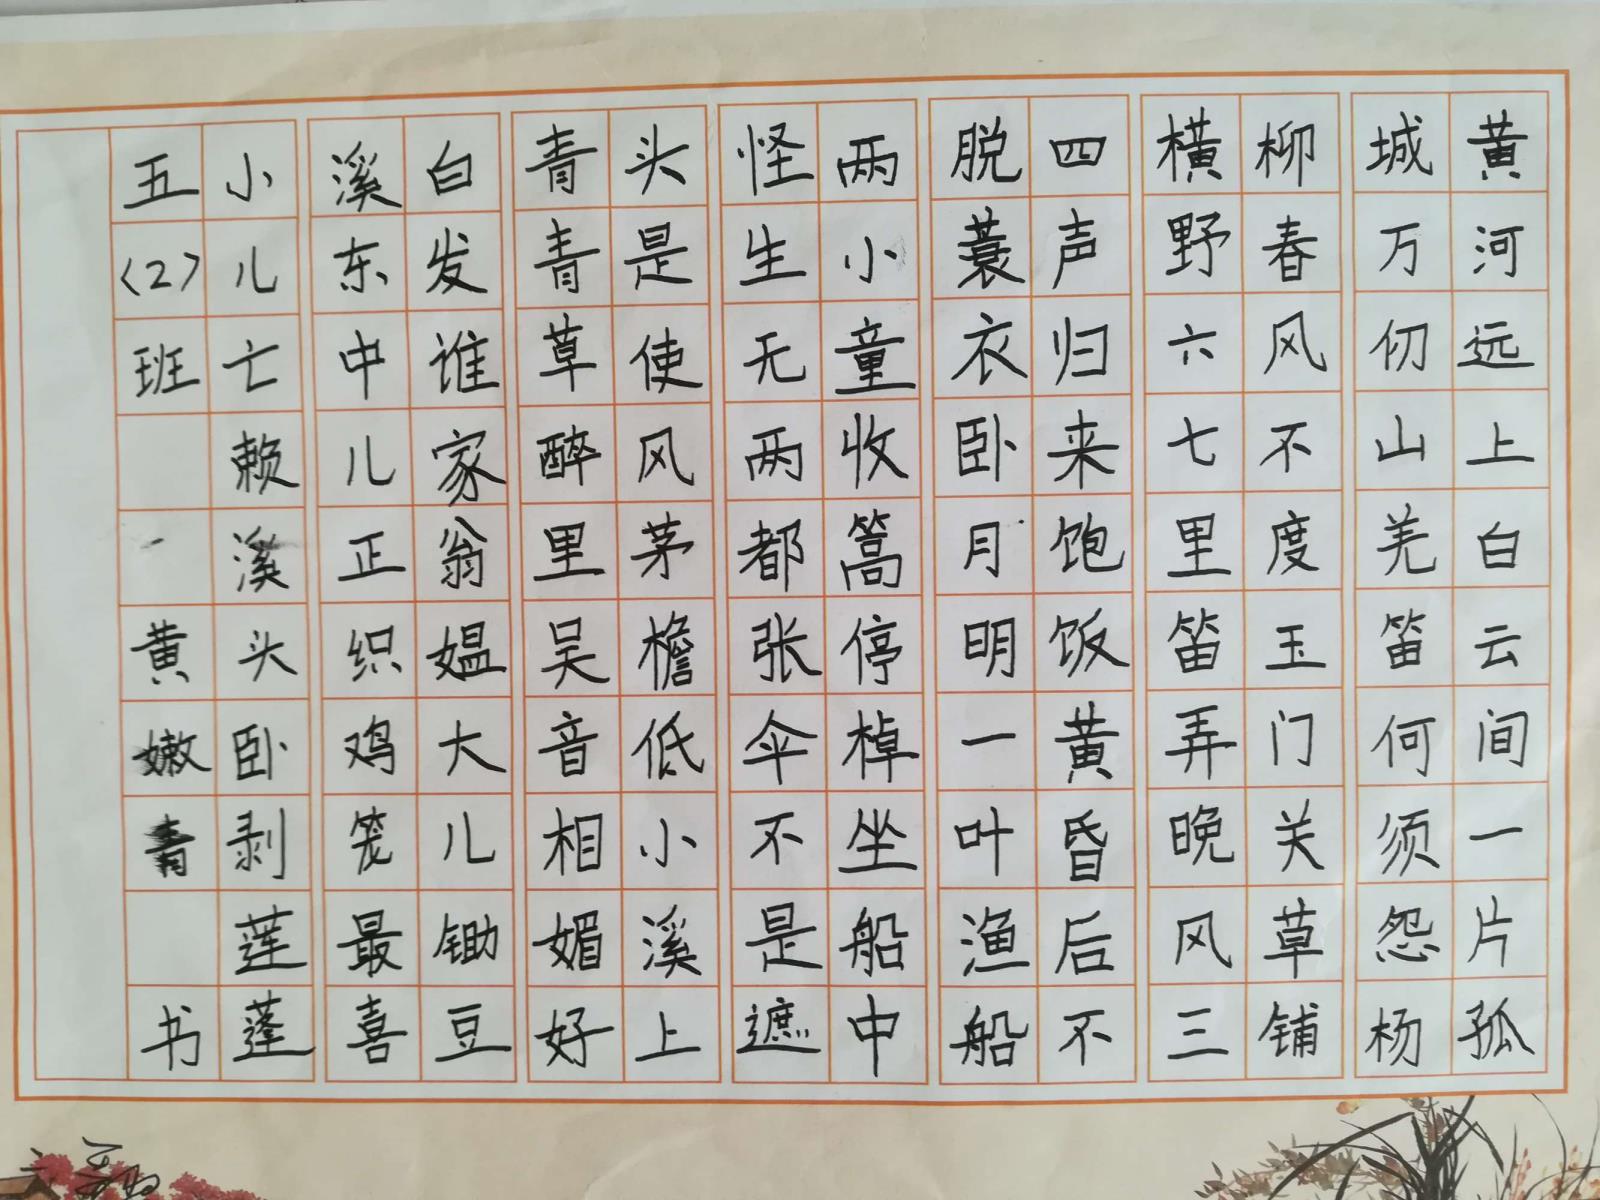 黄河远上白云间一片孤
城万仞山羌笛何须怨杨
柳春风不度玉门关草铺
横野六七里笛弄晚风三
四声归来饱饭黄昏后不
脱蓑衣卧月明一叶渔船
两小童收篙停棹坐船中
怪生无两都张伞不是遮
头是使风茅檐低小溪上
青青草醉里吴音相媚好
白发谁家翁媪大儿锄豆
溪东中儿正织鸡笼最喜
小儿亡赖溪头卧剥莲蓬
五〈2〉班 黄嫩青 书